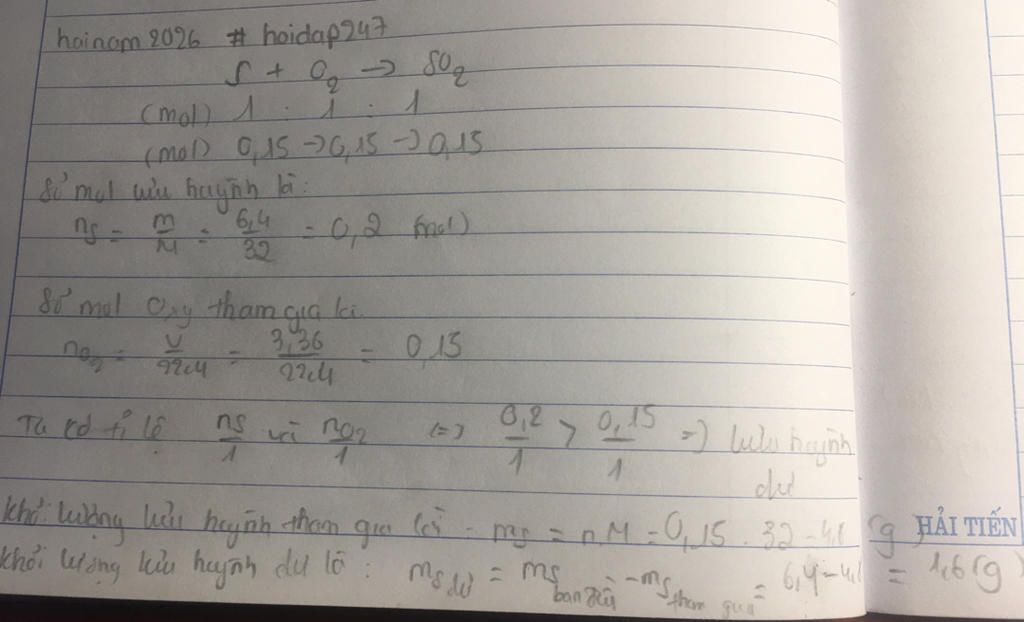 hainam2026 # hoidap247
S + O2 → SO2
(mol) 1 : 1 : 1
(mol) 0,15 → 0,15 → 0,15
Số mol lưu huỳnh là:
nS = m/M = 6,4/32 = 0,2 (mol)
Số mol Oxy tham gia là
nO2 = V/22,4 = 3,36/22,4 = 0,15
Ta có tỉ lệ nS/1 và nO2/1 (=) 0,2/1 > 0,15/1 =) lưu huỳnh
dư
khối lượng lưu huỳnh tham gia là - mS = n.M = 0,15 . 32 - 4,8 (g)
HẢI TIẾN
khối lượng lưu huỳnh dư là : mS dư = mS ban đầu - mS tham gia = 6,4 - 4,8 = 1,6 (g)